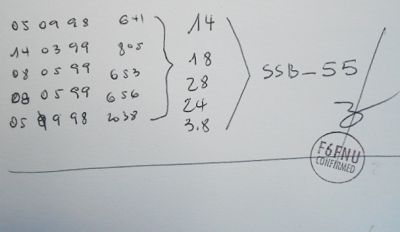 05 09 98 641 14
14 03 99 805 18
08 05 99 653 28
08 05 99 656 24
05 09 98 2038 3.8
SSB-55
F6FNU
CONFIRMED